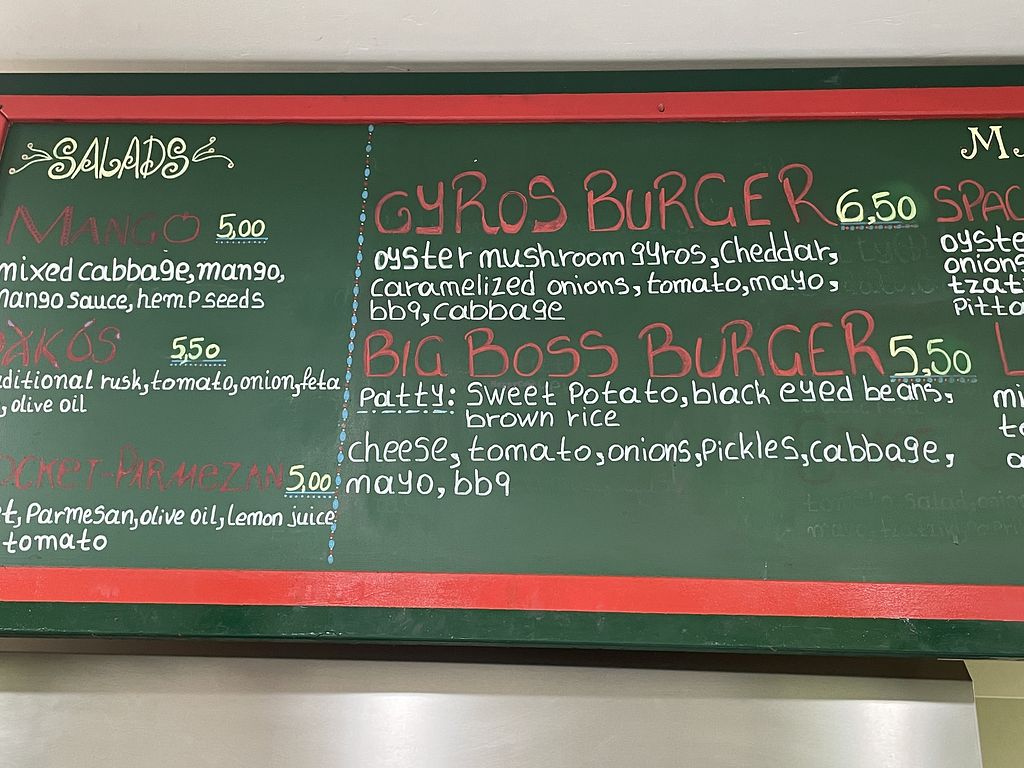 SALADS
MANGO 5,00
mixed cabbage, mango,
mango sauce, hemp seeds
5,50
rusk, tomato, onion, feta
, olive oil
PARMEZAN 5,00
Parmesan, olive oil, lemon juice
tomato
GYROS BURGER 6,50
oyster mushroom gyros, Cheddar,
caramelized onions, tomato, mayo,
bbq, cabbage
BIG BOSS BURGER 5,50
Patty: Sweet Potato, black eyed beans,
brown rice
cheese, tomato, onions, Pickles, cabbage,
mayo, bbq